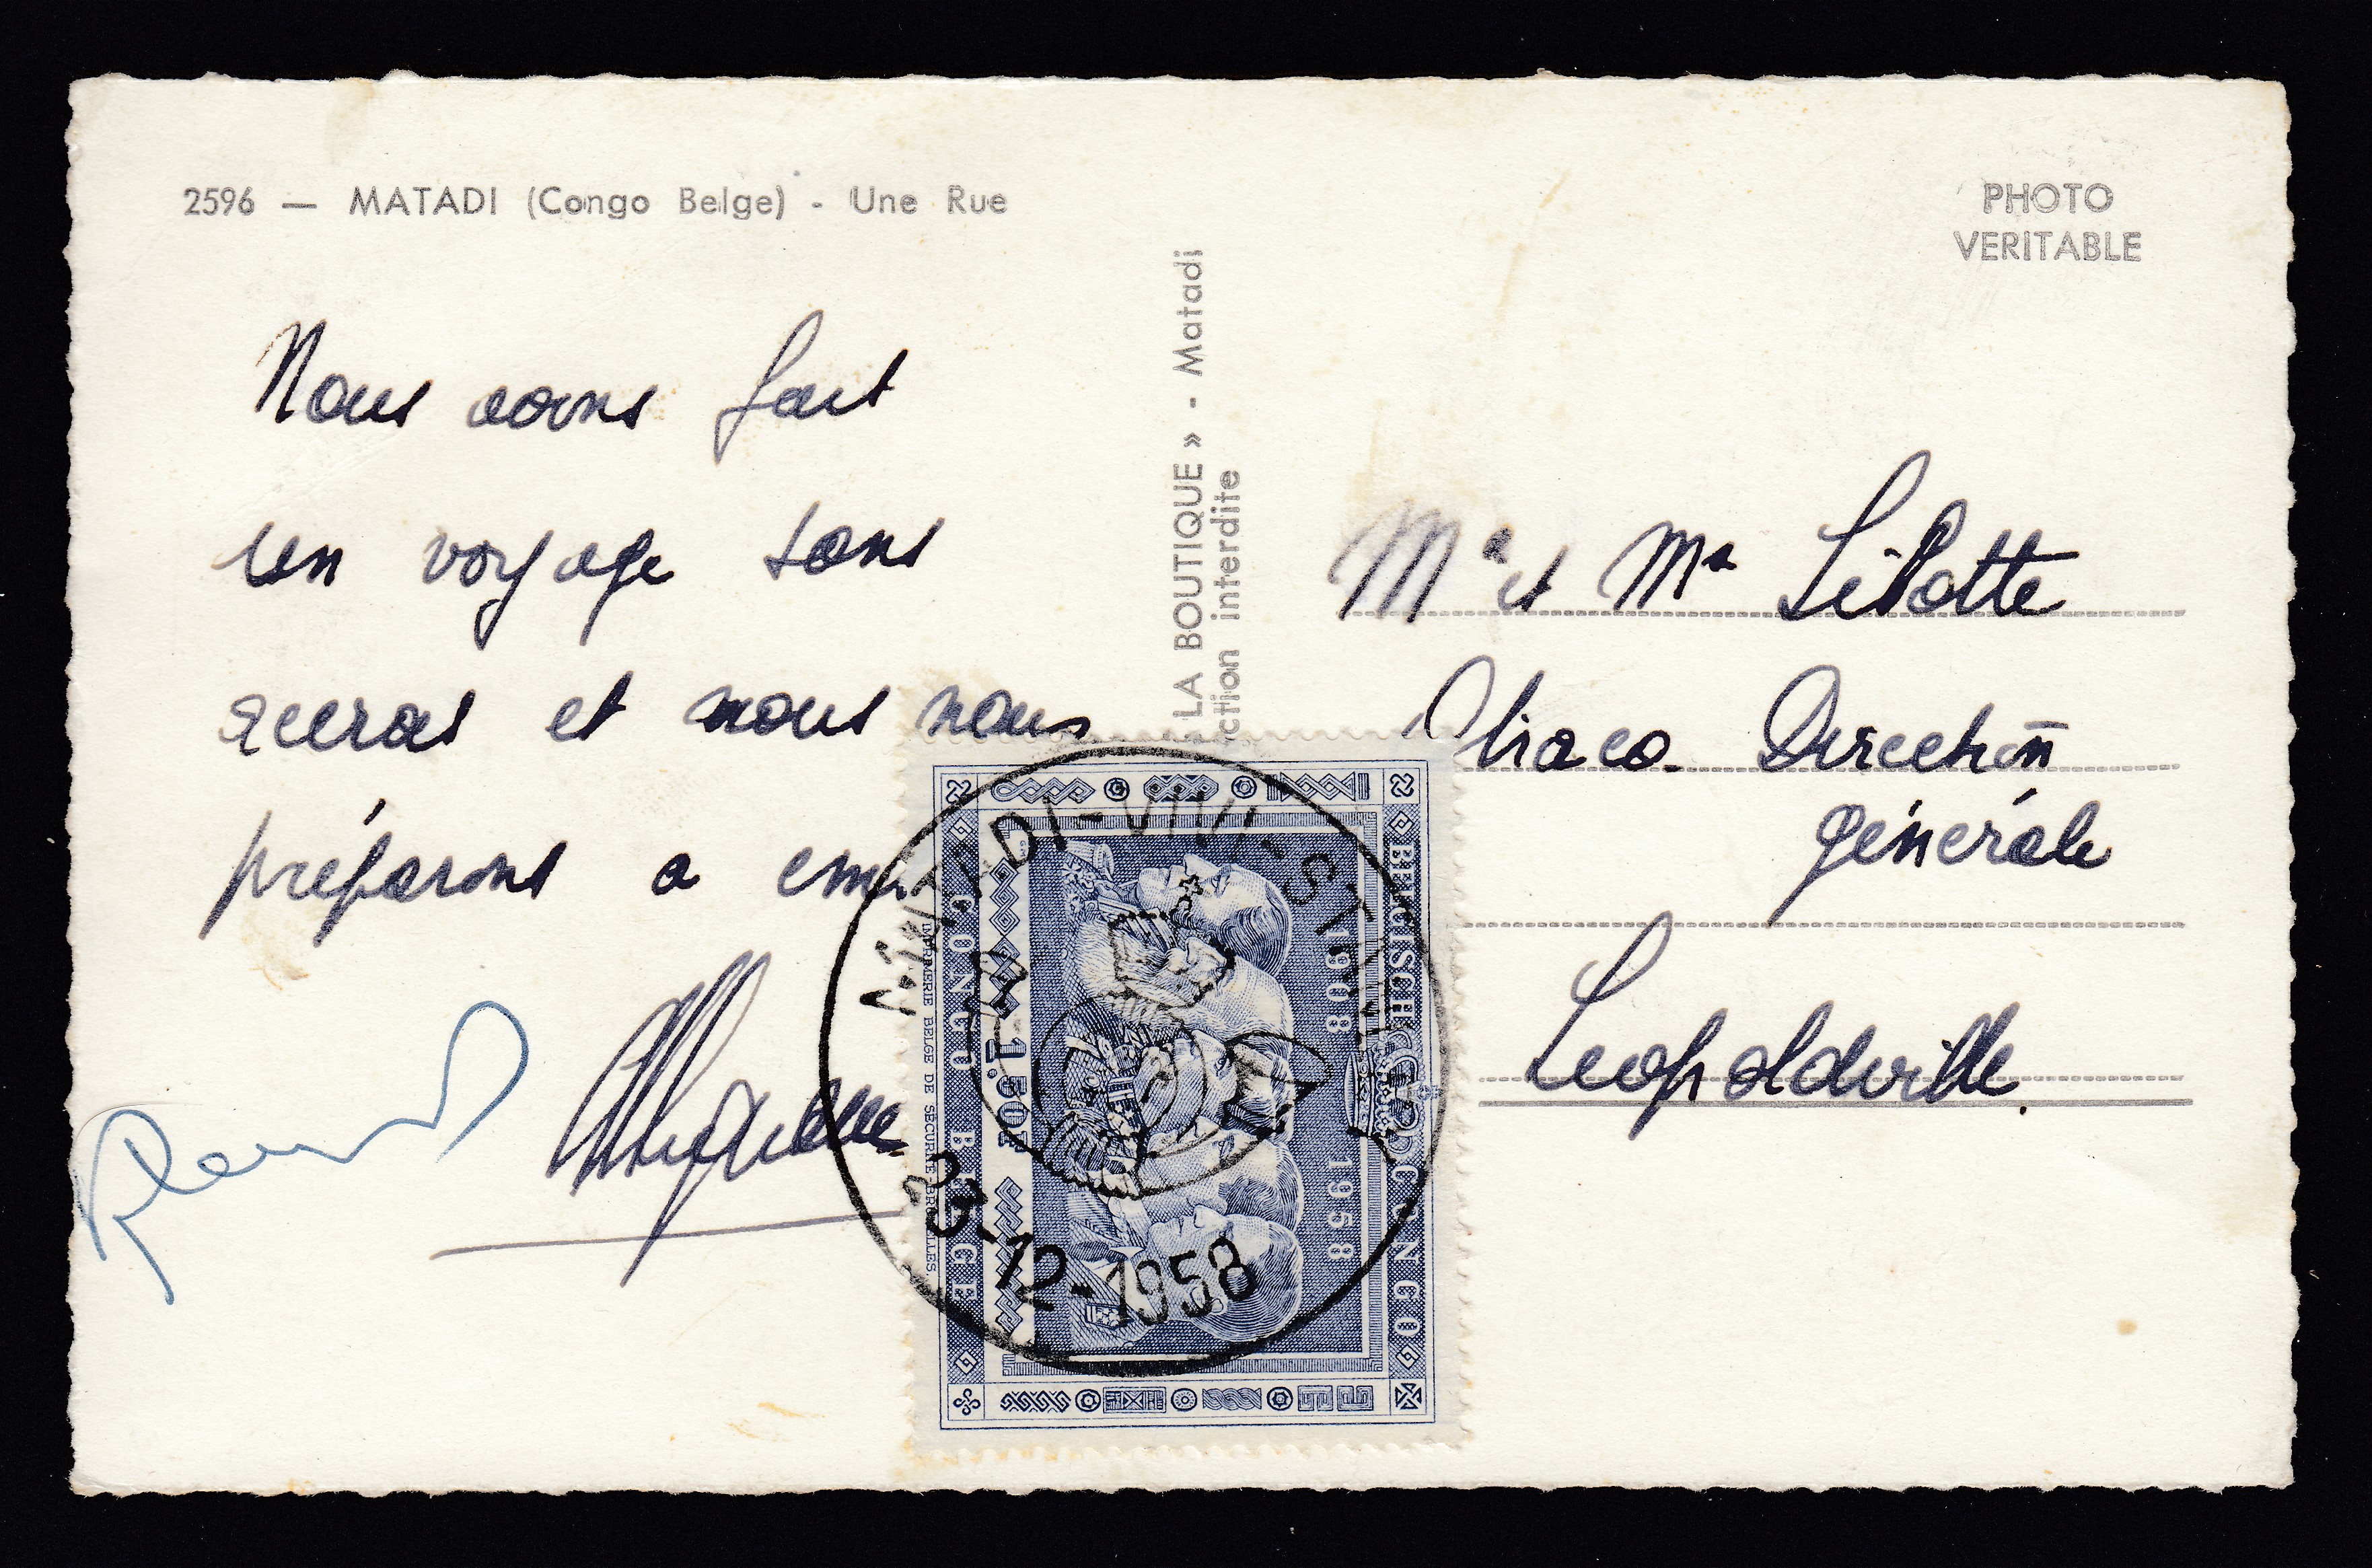 2596 — MATADI (Congo Belge) - Une Rue
PHOTO
VERITABLE
LA BOUTIQUE » - Matadi
ction interdite
Nous avons fait
un voyage sans
accras et nous nous
préparons a em
Mr et Me Lilotte
Otraco Direction
générale
Leopoldville.
MATADI-VIVI-STANLEY
23-12-1958
BELGISCH CONGO
1908 1958
1.50F
CONGO BELGE
IMPRIMERIE BELGE DE SECURITE-BRUXELLES